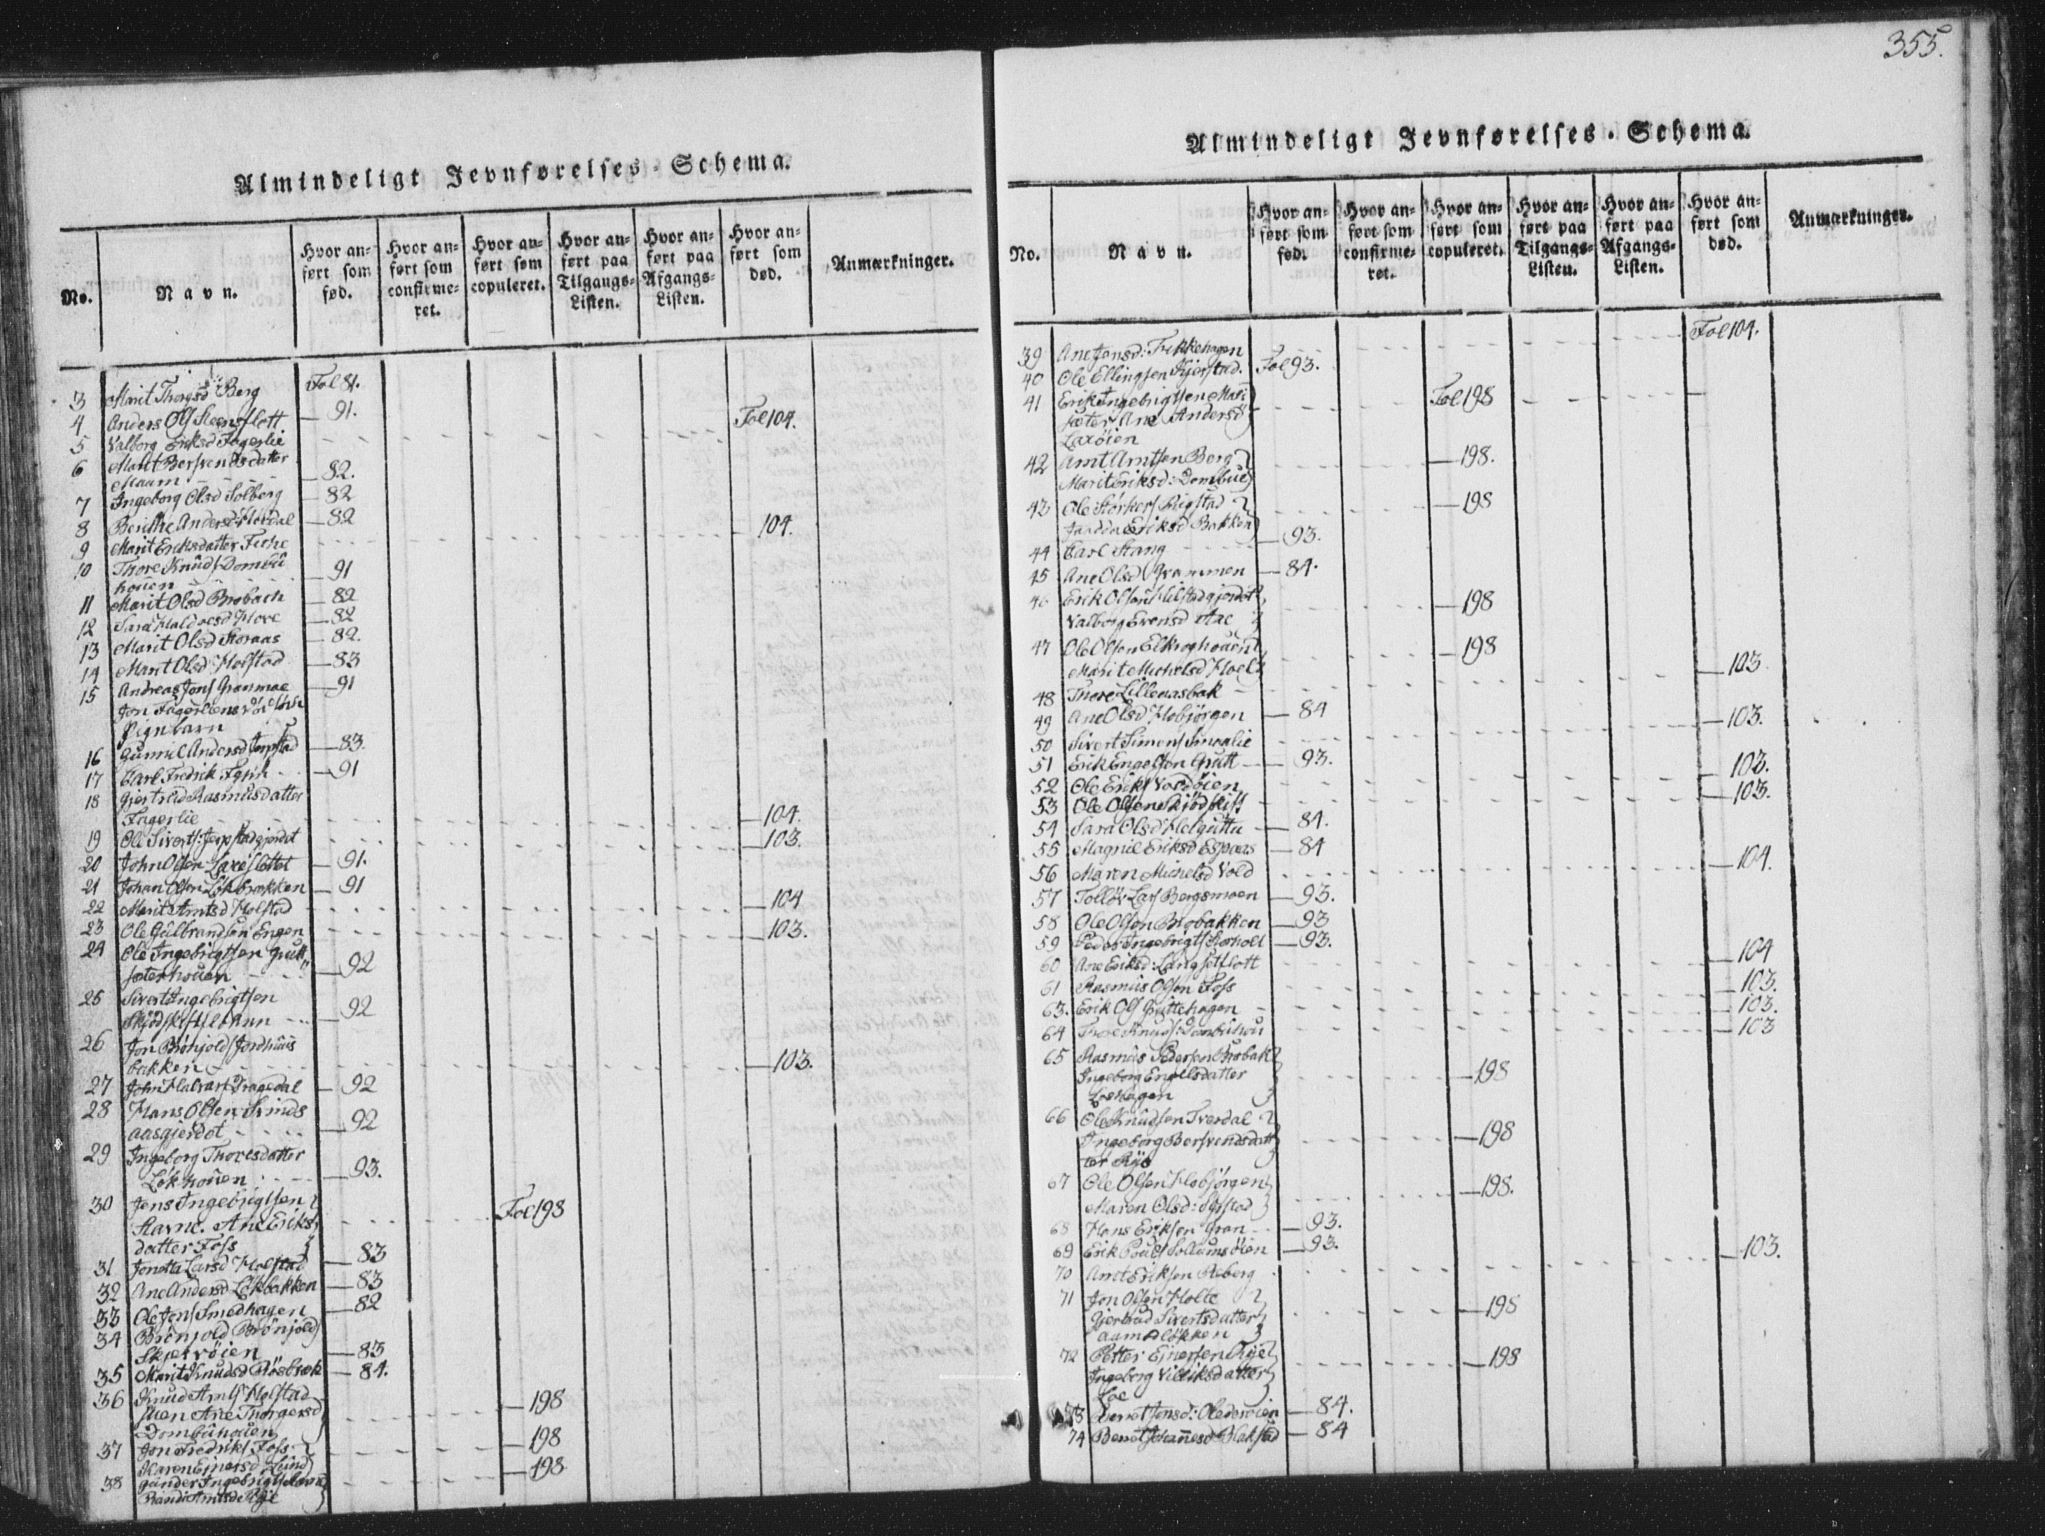 355.
Almindeligt Jevnførelses-Schema.
No. Navn. Hvor anført som fød. Hvor anført som confirmeret. Hvor anført som copuleret. Hvor anført paa Tilgangs-Listen. Hvor anført paa Afgangs-Listen. Hvor anført som død. Anmærkninger.
3 Marit Thorgsd Berg Fol 81.
4 Anders Ols Steensflott 91.
5 Valborg Eriksd Fagerlie Fol 104.
6 Marit Bersvendsdatter
Maam 82.
7 Ingeborg Olsd Solberg 82
8 Berithe Andersd Hovdal 82
9 Marit Eriksdatter 104.
10 Thore Knuds Dombu
houen 91
11 Marit Olsd Brobach 82
12 Sara Haldosd Hove 82
13 Marit Olsd Storaas 82.
14 Marit Olsd Holstad 83
15 Andreas Jons Granmoe 91
Jon Fagerliens
Pignbarn
16 Gunnil Andersd Jerpstad 83.
17 Carl Fredrik 91
18 Gjertrud Rasmusdatter
Fagerlie 104.
19 Ole Siverts: Jerpstadgjerdet 103.
20 John Olsen 91.
21 Johan Olsen Løkbrækken 91
22 Marit Arntsd Holstad 104
23 Ole Gulbrandsen Engen 103.
24 Ole Ingebrigtsen Grutt
sæterhouen 92
25 Sivert Ingebrigtsen
92
26 Jon Brønjolds Jordhuus
bakken 103.
27 John Halvars Tragedal 92
28 Hans Olsen Svinds
aasgjerdet 92
29 Ingeborg Thoresdatter
Løkhouen 93.
30 Jens Ingebrigtsen
Stavne. Ane Eriks Fol 198
datter Foss
31 Jonetta Larsd Holstad 83
32 Ane Andersd Løkbakken 83
33 Ole Jens Smedhagen 82
34 Brønjold Brønjolds
Skjetrøien 83
35 Marit Knudsd Røsbæk 84.
36 Knud Arnts Holstad 198
Ane Thorgersd
Dombuhouen
37 Jon Fredriks Foss 198
Karen Ejnersd Lund
38 Gunder Ingebrigts 198
Randi Arntsd Rye
Almindeligt Jevnførelses-Schema.
No. Navn. Hvor anført som fød. Hvor anført som confirmeret. Hvor anført som copuleret. Hvor anført paa Tilgangs-Listen. Hvor anført paa Afgangs-Listen. Hvor anført som død. Anmærkninger.
39 Ane Jonsd: Fikkehagen Fol 104.
40 Ole Ellingsen Kjerstad. Fol 93.
41 Erik Ingebrigtsen Mosi Fol 198
sæter Ane Andersd
Laxøien
42 Arnt Arntsen Berg 198.
Marit Eriksd: Dombue
43 Ole Størkers Rigstad 198
Eriksd Bakken
44 Carl Stang 93.
45 Ane Olsd Grammen 84.
46 Erik Olsen Holstadgjerdet 198
Valborg Evensd Aae
47 Ole Olsen Elkroghouen 198
Marit Michelsd Hoel
48 Thore Lillevasbak 103
49 Ane Olsd Hobjørgen 84
50 Sivert Simens Smoalie 103.
51 Erik Engelsen Grutt 93.
52 Ole Eriks Voldøien 103.
53 Ole Olsen Skjødskift 103.
54 Sara Olsd Helguttu 84.
55 Magnil Eriksd Espaas 84
56 Maren Michelsd Vold 104.
57 Tolløv Lars Bergsmoen 93.
58 Ole Olsen Brobakken 93
59 Peder Ingebrigts Storholt 93.
60 Ane Eriksd: Langsetflott 104
61 Rasmus Olsen Foss 103.
63. Erik Ols Gruttehagen 103.
64 Thore Knuds: Dombuhou 103
65 Rasmus Pedersen Brobak
Ingeborg Engelsdatter 198
Loehagen
66 Ole Knudsen Tverdal
Ingeborg Bersvendsdat 198
ter Rye
67 Ole Olsen Hobjørgen 198.
Maren Olsd:
68 Hans Eriksen Gran 93.
69 Erik Pouls Sollumsøien 93.
70 Arnt Eriksen Reberg 103.
71 Jon Olsen Holte
Gjertrud Sivertsdatter 198
Aamodløkken
72 Petter Ejnersen Rye
Ingeborg Villiksdatter 198
Loe
73 Berret Jonsd: Olederøien 84.
74 Beret Johannesd Blakstad 84